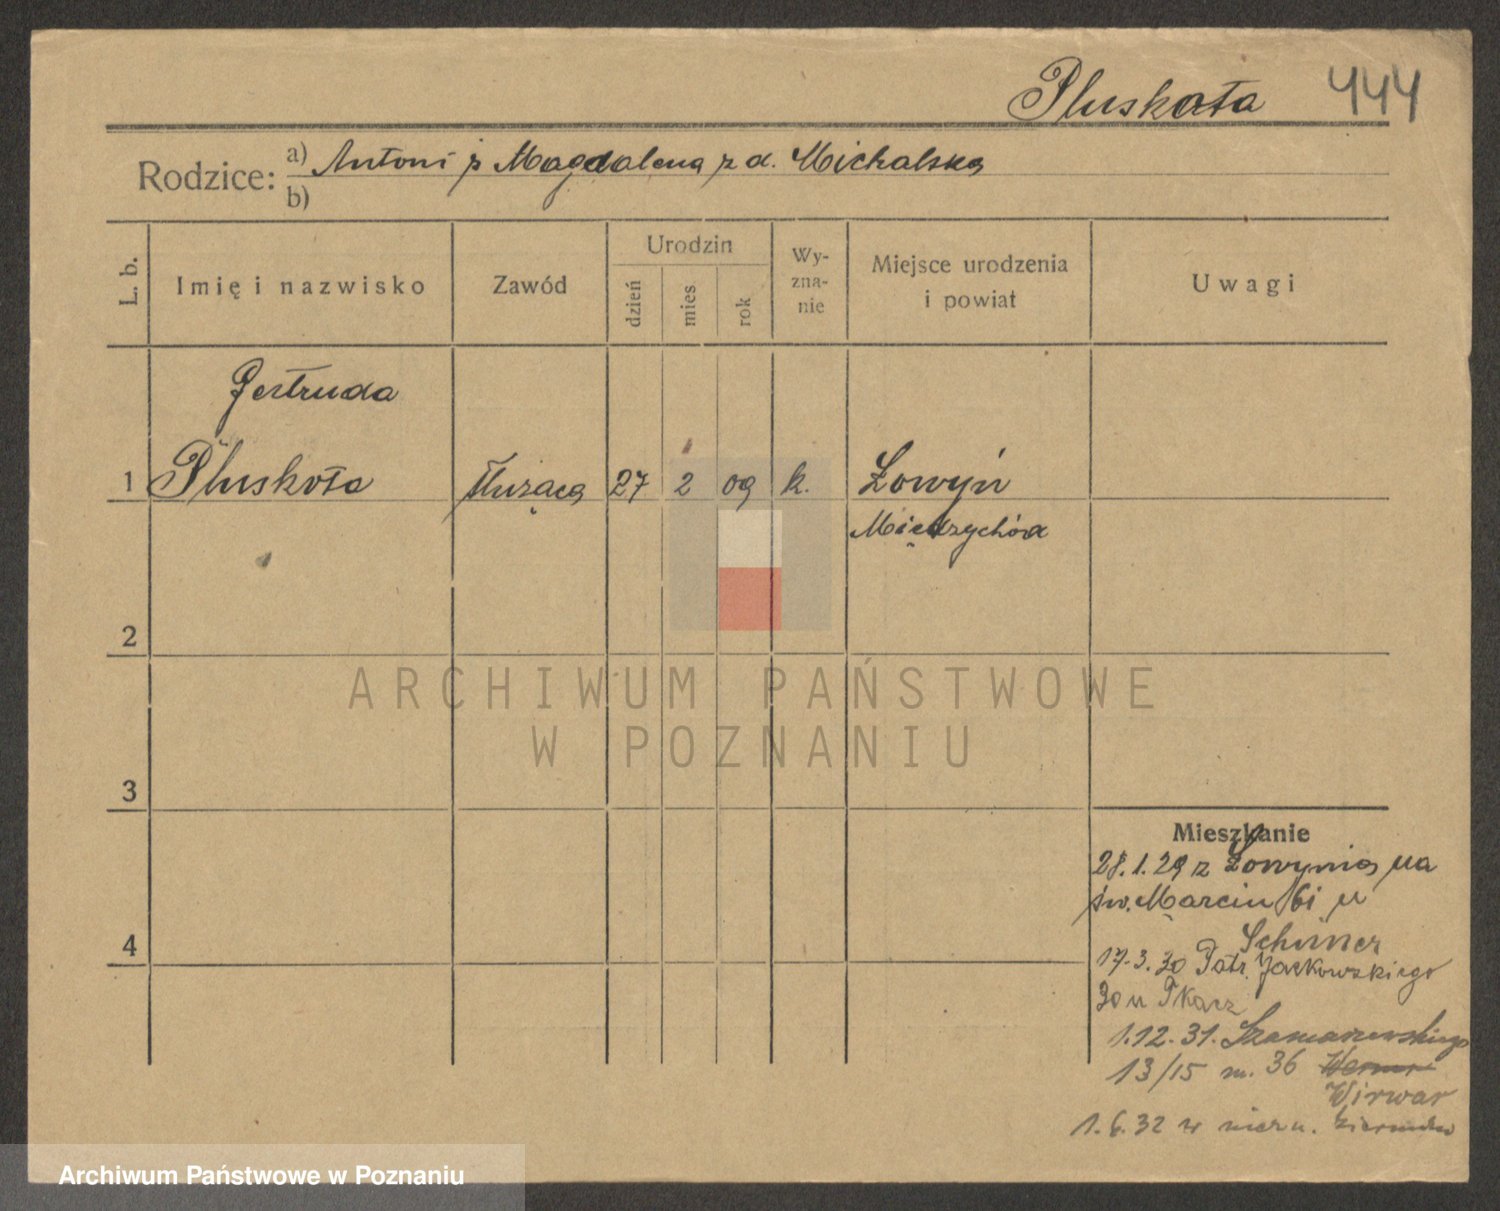 Pluskota 444
Rodzice: a) Antoni i Magdalena z d. Michalska
b)
L. b. Imię i nazwisko Zawód Urodzin dzień mies rok Wy-zna-nie Miejsce urodzenia i powiat Uwagi
Gertruda
1 Pluskota służąca 27 2 09 k. Łowyń
Międzychód
2
ARCHIWUM PAŃSTWOWE
W POZNANIU
3
Mieszkanie
28.1.29 z Łowynia na
św. Marcin 61 u
4
17.3.30 Patr. Jackowskiego
30 u Tkacz
1.12.31. Szamarzewskiego
13/15 m. 36
Wirwar
1.6.32 w niezn. kierunku
Archiwum Państwowe w Poznaniu